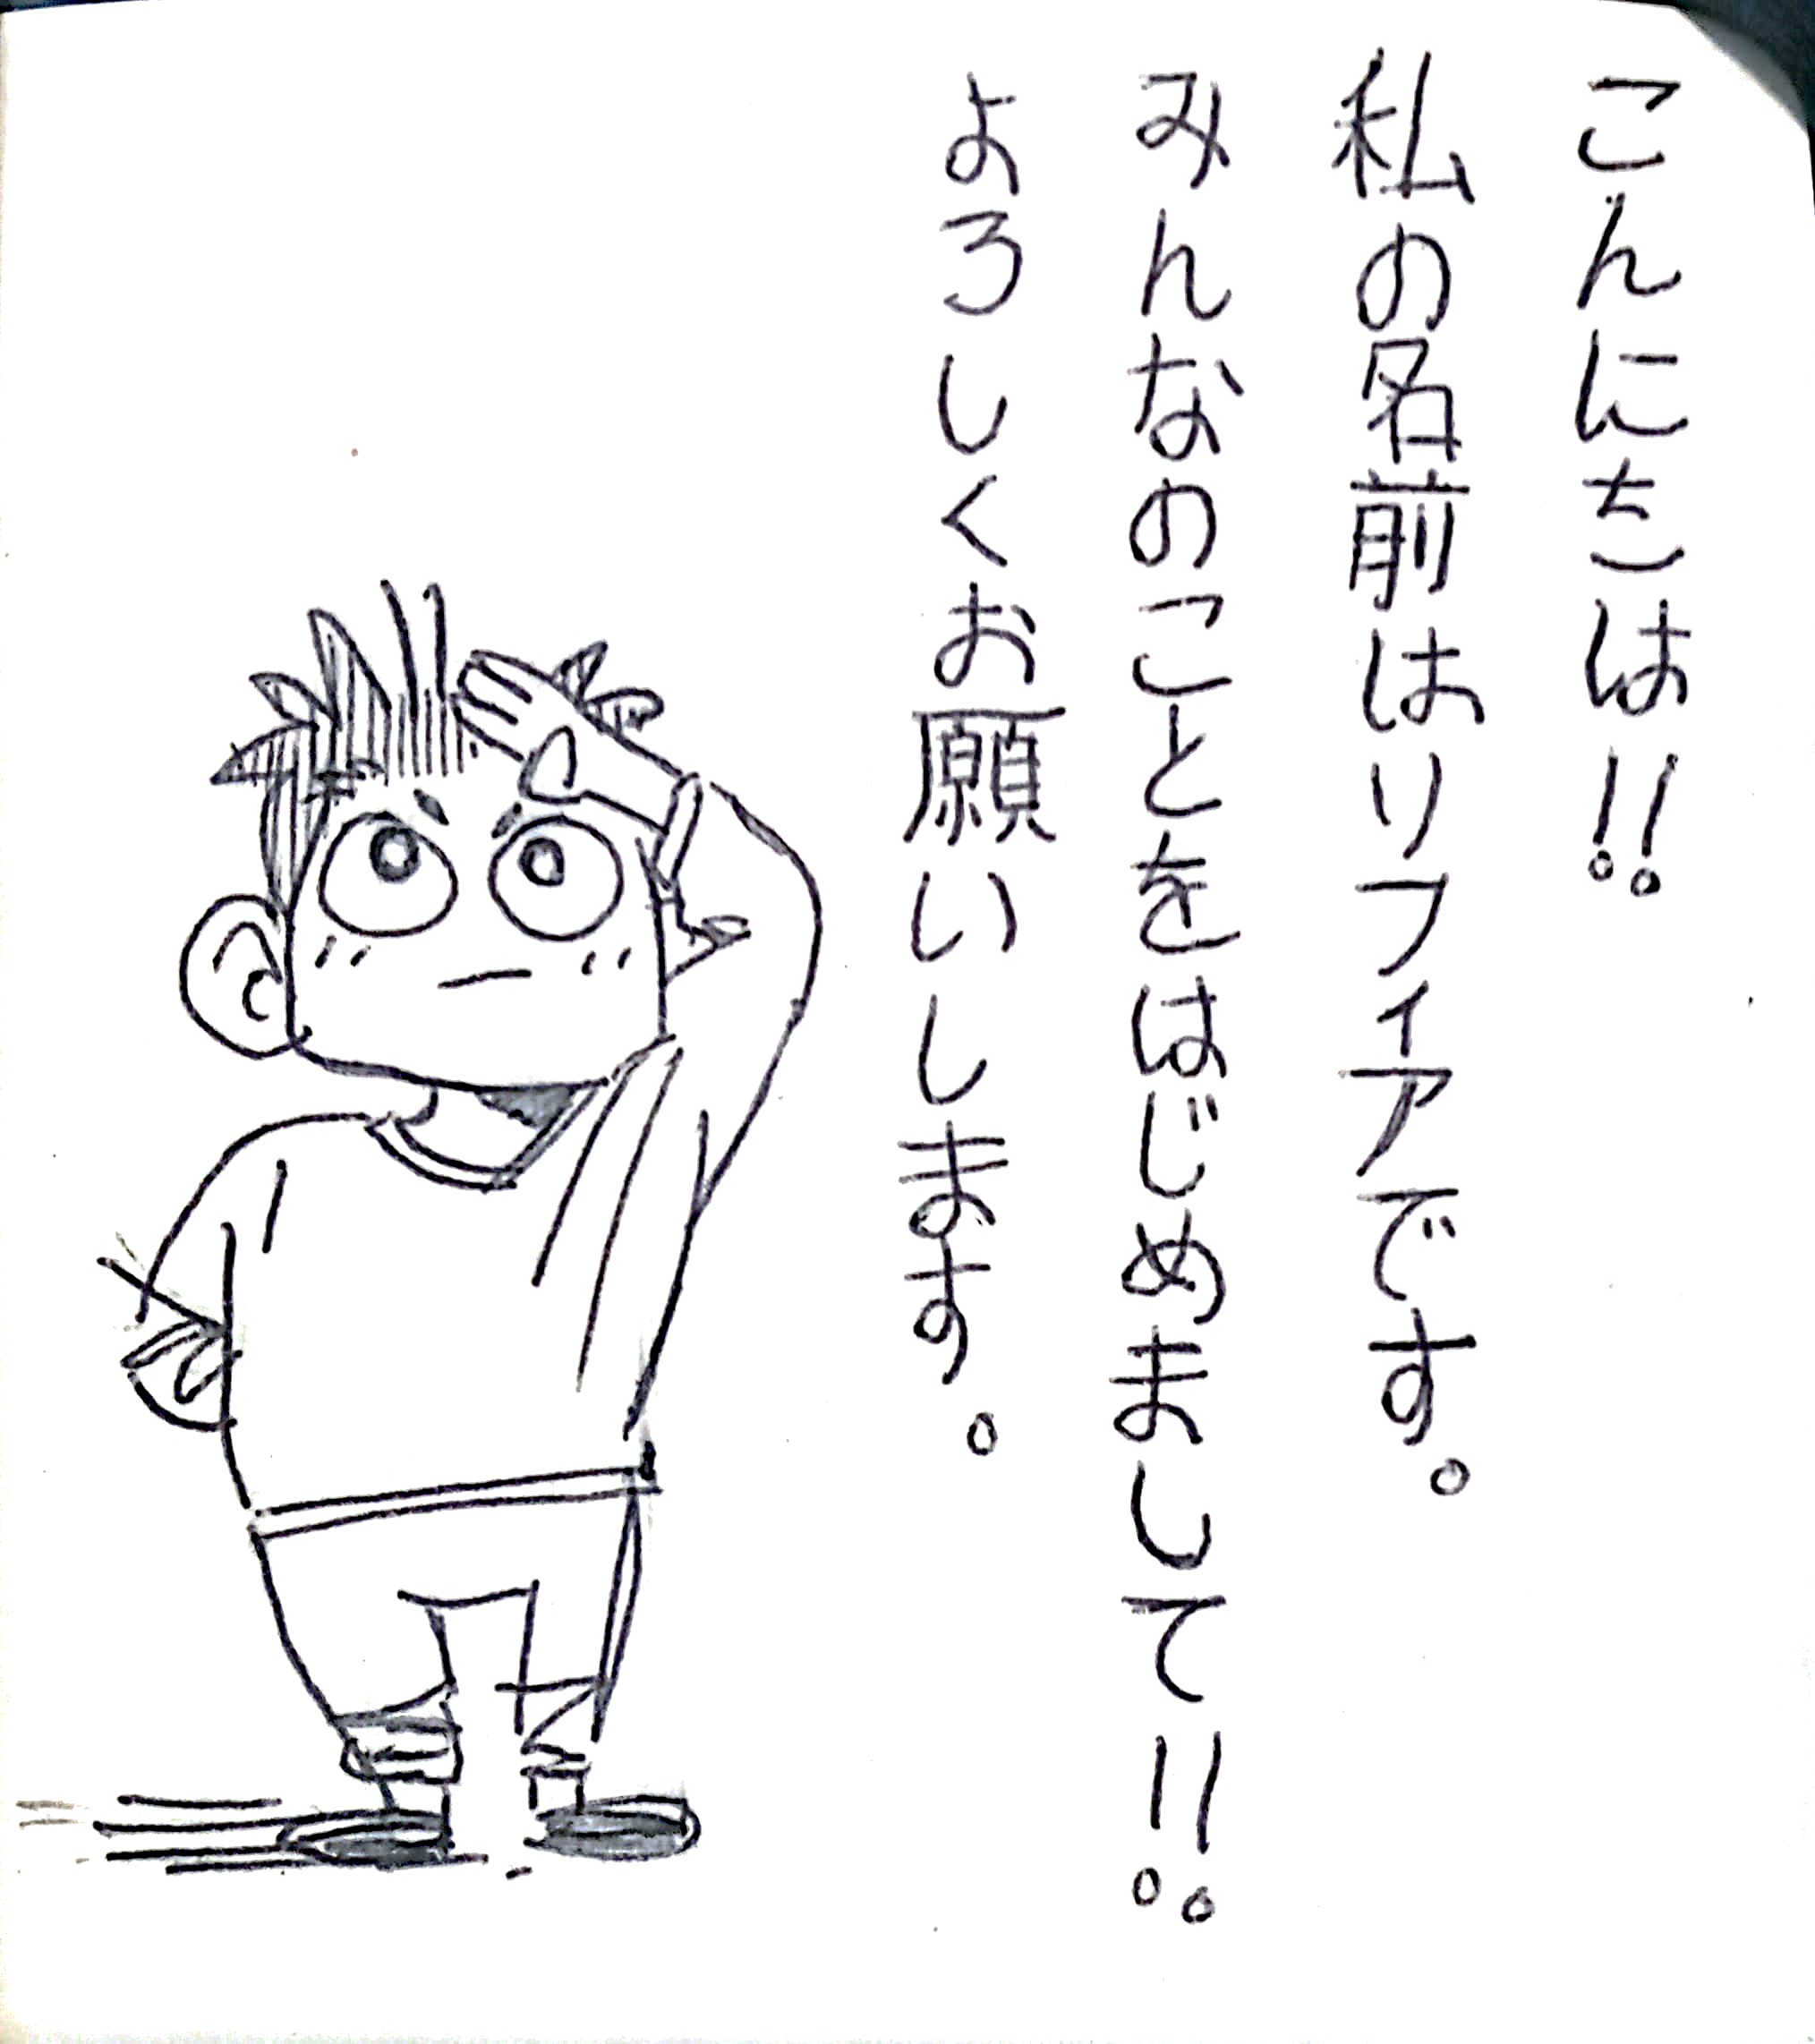 こんにちは!!
私の名前はリフィアです。
みんなのことをはじめまして!!
よろしくお願いします。